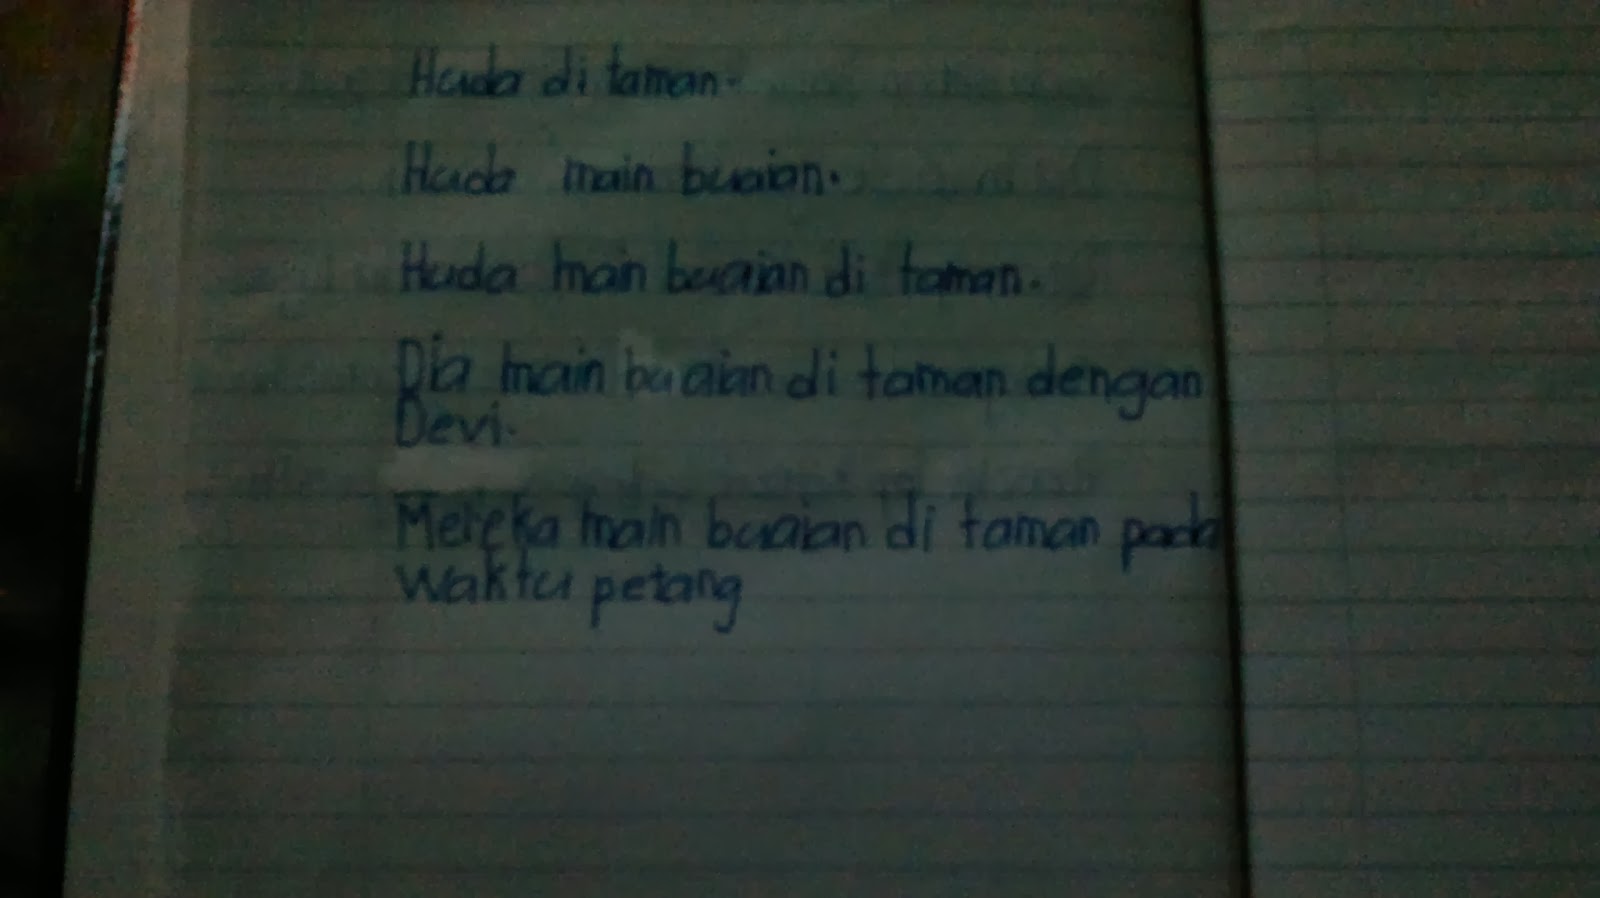 Huda di taman.
Huda main buaian.
Huda main buaian di taman.
Dia main buaian di taman dengan
Devi.
Mereka main buaian di taman pada
waktu petang